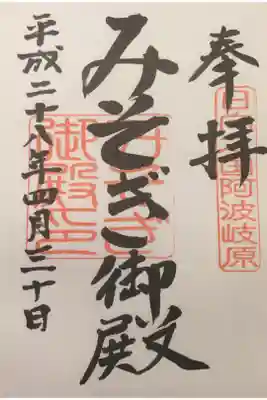 奉拝
阿波岐原
みそぎ御殿
御殿印
平成二十八年四月三十日